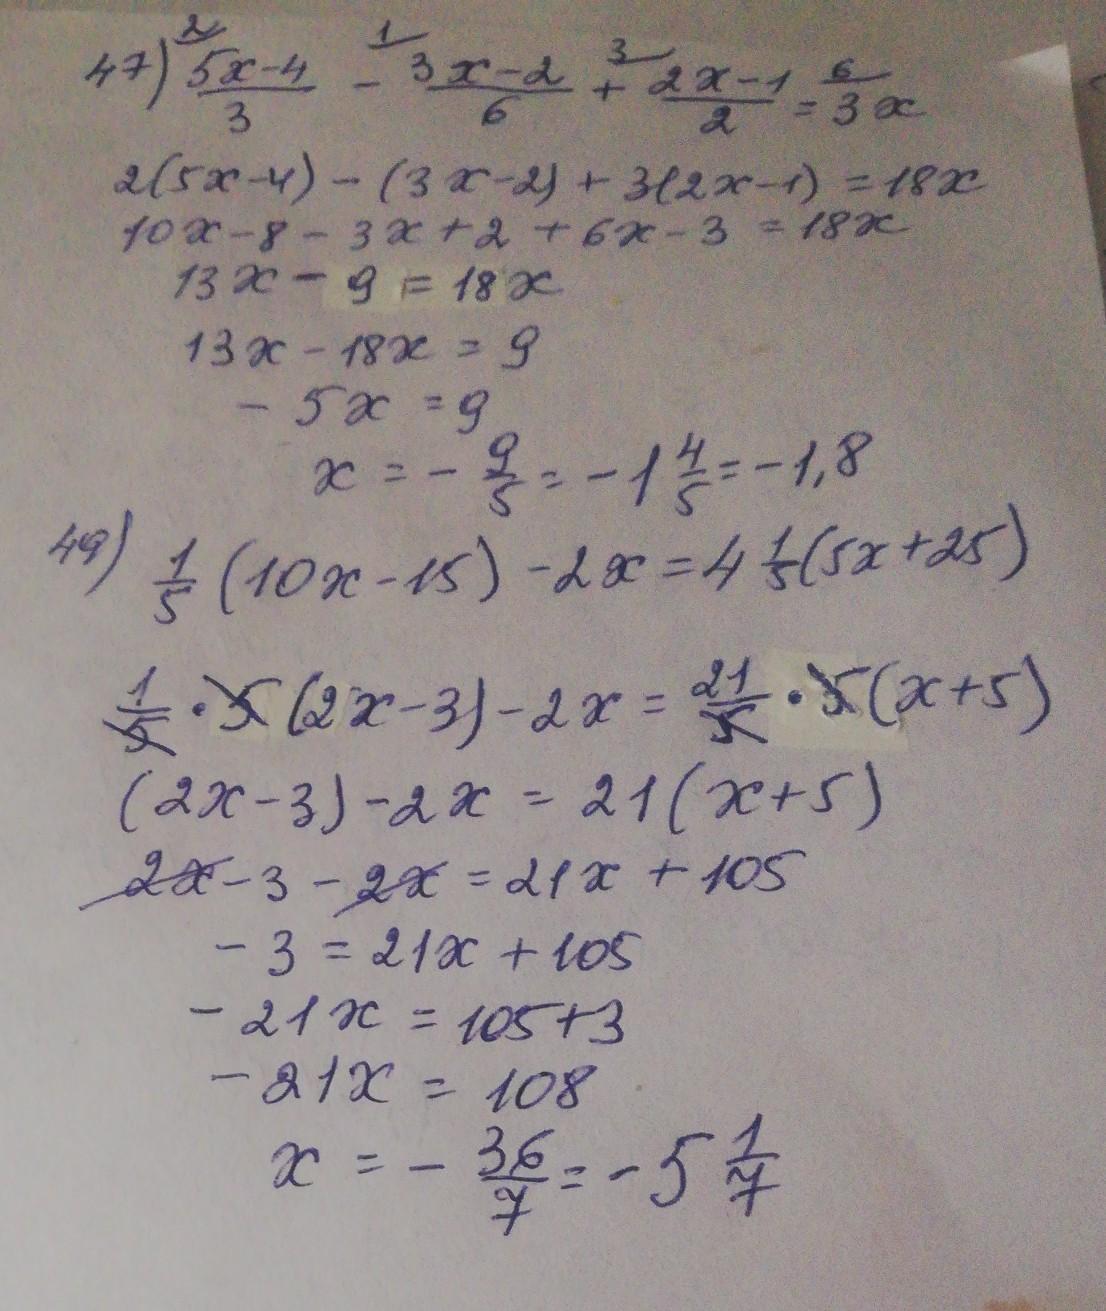 47) 2 (5x-4)/3 - 1 (3x-2)/6 + 3 (2x-1)/2 = 6 3x
2(5x-4) - (3x-2) + 3(2x-1) = 18x
10x-8-3x+2+6x-3 = 18x
13x - 9 = 18x
13x - 18x = 9
- 5x = 9
x = - 9/5 = -1 4/5 = -1,8
49) 1/5 (10x-15) - 2x = 4 1/5 (5x+25)
1/5 · 5 (2x-3) - 2x = 21/5 · 5 (x+5)
(2x-3) - 2x = 21(x+5)
2x - 3 - 2x = 21x + 105
- 3 = 21x + 105
- 21x = 105+3
- 21x = 108
x = - 36/7 = -5 1/7